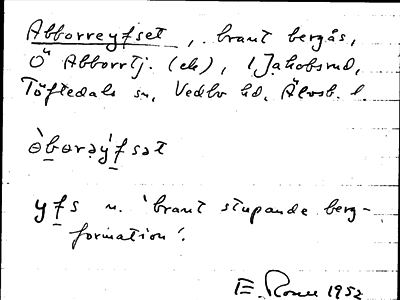 Abborreyfset, brant bergås,
Ö Abborrtj. (ek), 1 Jakobsrud,
Töftedals sn, Vedbo hd, Älvsb. l.
òbørəy̍fsət
yfs n. 'brant stupande berg-
formation'.
E. 1952